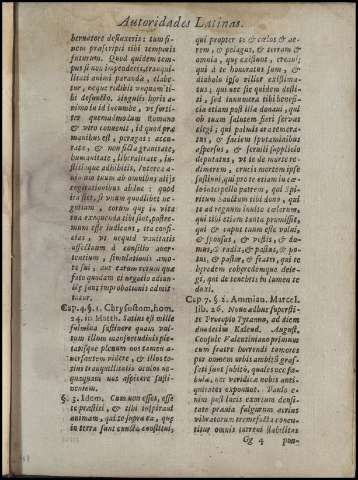 Autoridades Latinas.
bernatore desueveris: tum si-
nem præscripti tibi temporis
futurum. Quod quidem tem-
pus si non impenderis, tranqui-
litati animi paranda, elabe-
tur, neque redibis unquam ti-
bi defuncto, singulis horis a-
nimo in id incumbe, ut forti-
ter quemadmodum Romano
& viro convenit, id quod præ
manibus est, peragas: accu-
rate, & non ficta gravitate,
humanitate, liberalitate, iu-
stitiaque adhibitis, Interea a-
nimum tuum ab omnibus aliis
cogitationibus abduc: quod
ita fiet, si unum quodlibet ne-
gotium, eorum quæ in vita
tua exequenda tibi sint, postre-
mum esse iudicans, ita confi-
cias, ut nequid vanitatis
affectuum à ratione aver-
sentium, simulationis amo-
ris sui, aut earum rerum quæ
fato quodam et negotio adiun-
gi sunt improbationis admit-
tatur.
Cap. 4. §. 1. Chrysostom, hom,
24. in Matth. Satius est mille
fulmina sustinere quam vul-
tum illum mansuetudinis pie-
tatisque plenum nos tamen a-
versentem videre, & illos to-
tius tranquillitatis oculos ne-
quaquam nos aspicere susti-
nentem.
§. 3. Idem. Cum non esses, esse
te præstiti, & tibi inspiravi
animam, qui te supra ea, quæ
in terra sunt cuncta constitui,
qui propter te & cœlos & ae-
rem, & pelagus, & terram &
omnia, quæ existunt, creavi;
qui à te honoratus sum, & à
diabolo ipso vilior existima-
tus; qui nec sic quidem desti-
ti, sed innumera tibi benefi-
cia etiam post illa donavi, qui
ob tuam salutem fieri servus
elegi; qui palmis arietemera-
tus, & faciem sputaminibus
aspersus, & servili supplicio
deputatus, ut te de morte re-
dimerem, crucis mortem ipse
sustinui, qui pro te etiam in cæ-
lo intercello patrem, qui Spi-
ritum Sanctum tibi dono, qui
te ad regnum invito cælorum,
qui tibi etiam tanta promissi,
qui & caput tuum esse volui,
& sponsus, & vestis, & do-
mus, & radix, & pastus, & po-
tus, & pastor, & frater, qui te
heredem coheredemque dele-
gi, qui de tenebris in lumen te
duxi.
Cap 7. §. 2. Ammian. Marcel.
lib. 26. Novo adhuc supersti-
te Procopio Tyranno, ad diem
duodecim Kalend. August,
Consule Valentiniano primum
cum fratre horrendi tremores
per omnem orbis ambitū gras-
sati sunt subitò, quales nec fa-
bulæ, nec veridica nobis anti-
quitates exponunt. Paulo e-
nim post lucis exortum densi-
tate prævia fulgurum acrius
vibratorum tremefacta concu-
titur omnis terreni stabilitas
Gg 4 pon-